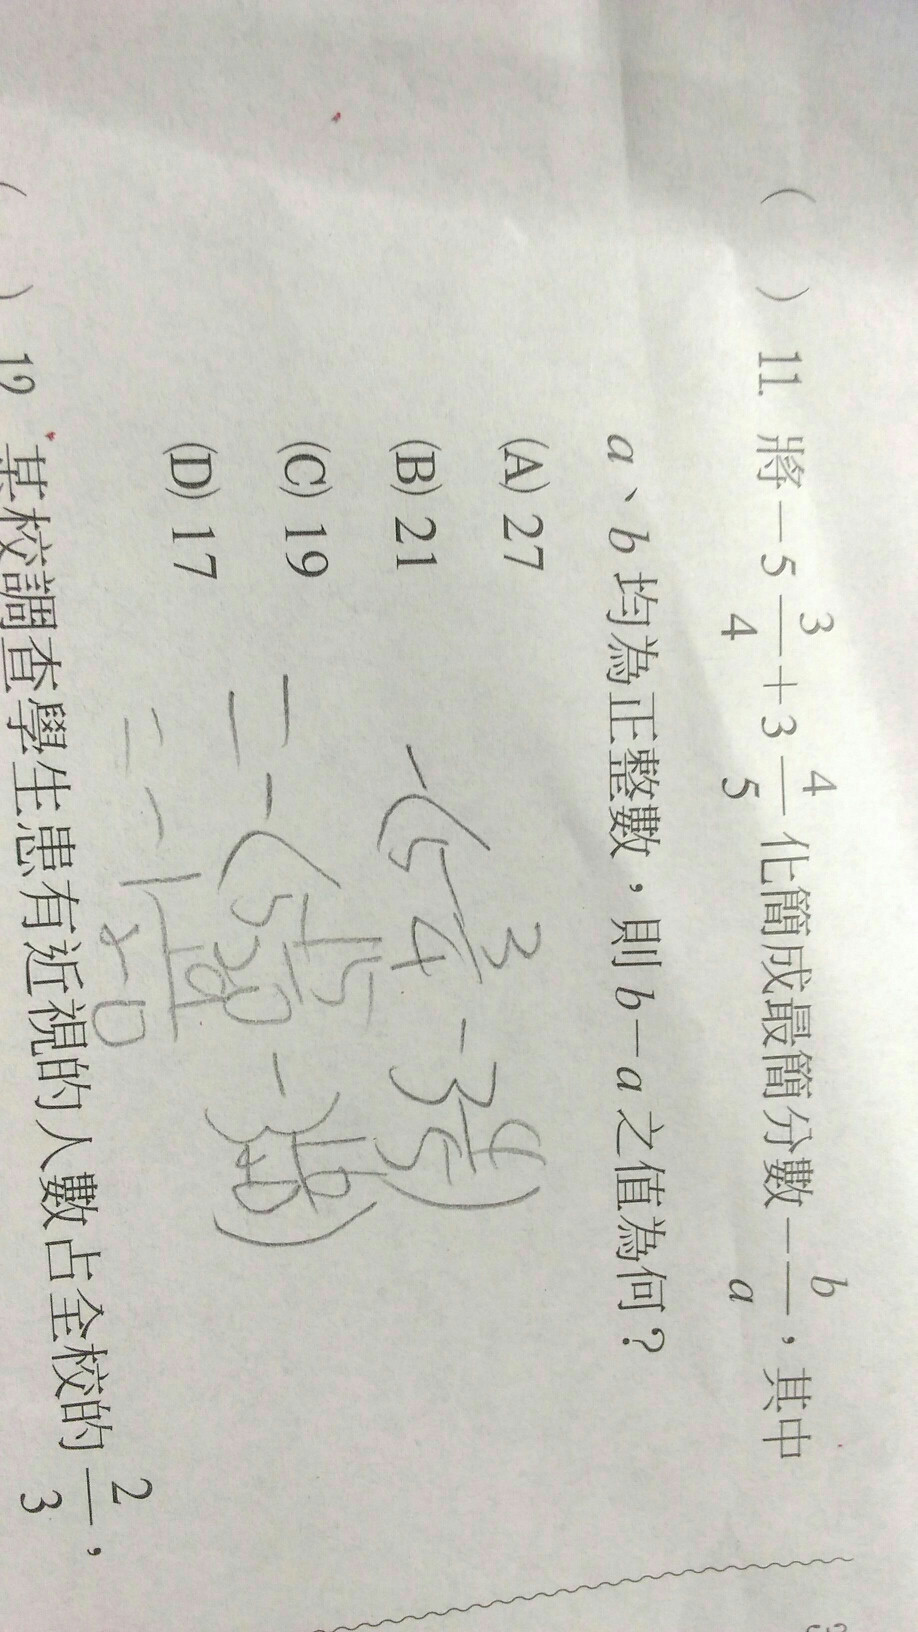 ( ) 11. 將-5 3/4+3 4/5化簡成最簡分數-b/a,其中
a、b均為正整數,則b-a之值為何?
(A) 27
(B) 21
(C) 19
(D) 17
-(5 3/4 -3 4/5)
=-(5 15/20 -3 16/20)
( ) 12 某校調查學生患有近視的人數占全校的2/3,